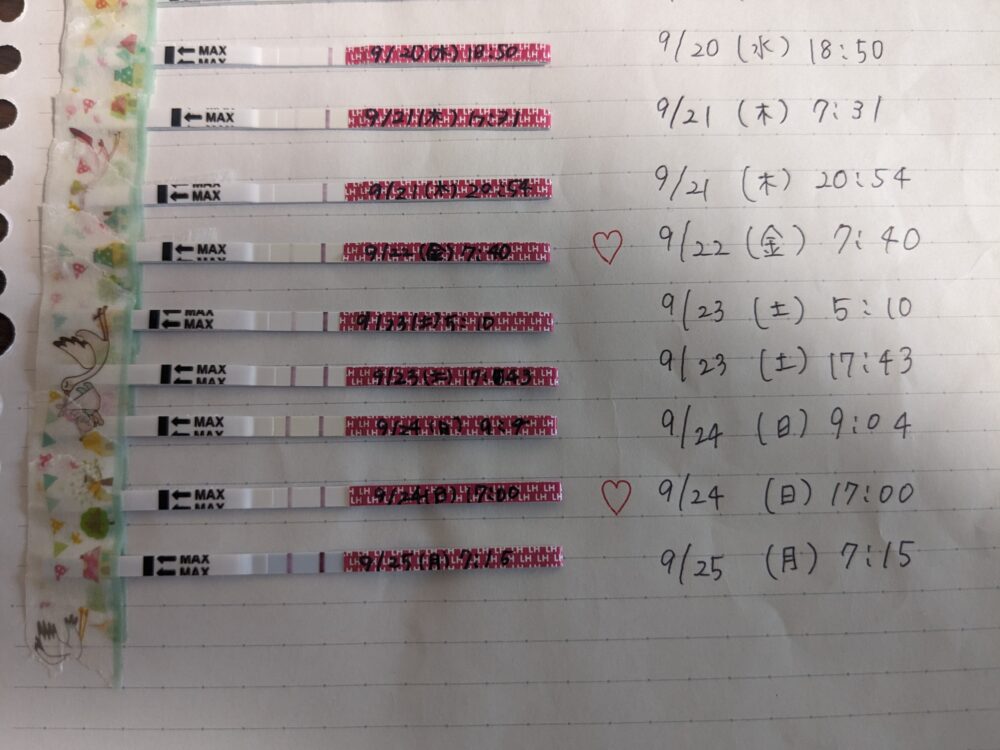 ← MAX 9/20(水)18:50 9/20 (水) 18:50
← MAX 9/21(木) 7:31 9/21 (木) 7:31
← MAX 9/21(木)20:54 9/21 (木) 20:54
← MAX 9/22(金)7:40 LH LH 9/22 (金) 7:40
← MAX 9/23(土)5:10 LH LH 9/23 (土) 5:10
← MAX 9/23(土)17:43 LH 9/23 (土) 17:43
← MAX 9/24(日) LH 9/24 (日) 9:04
← MAX 9/24(日)17:00 LH LH 9/24 (日) 17:00
← MAX 9/25(月)7:15 LH 9/25 (月) 7:15